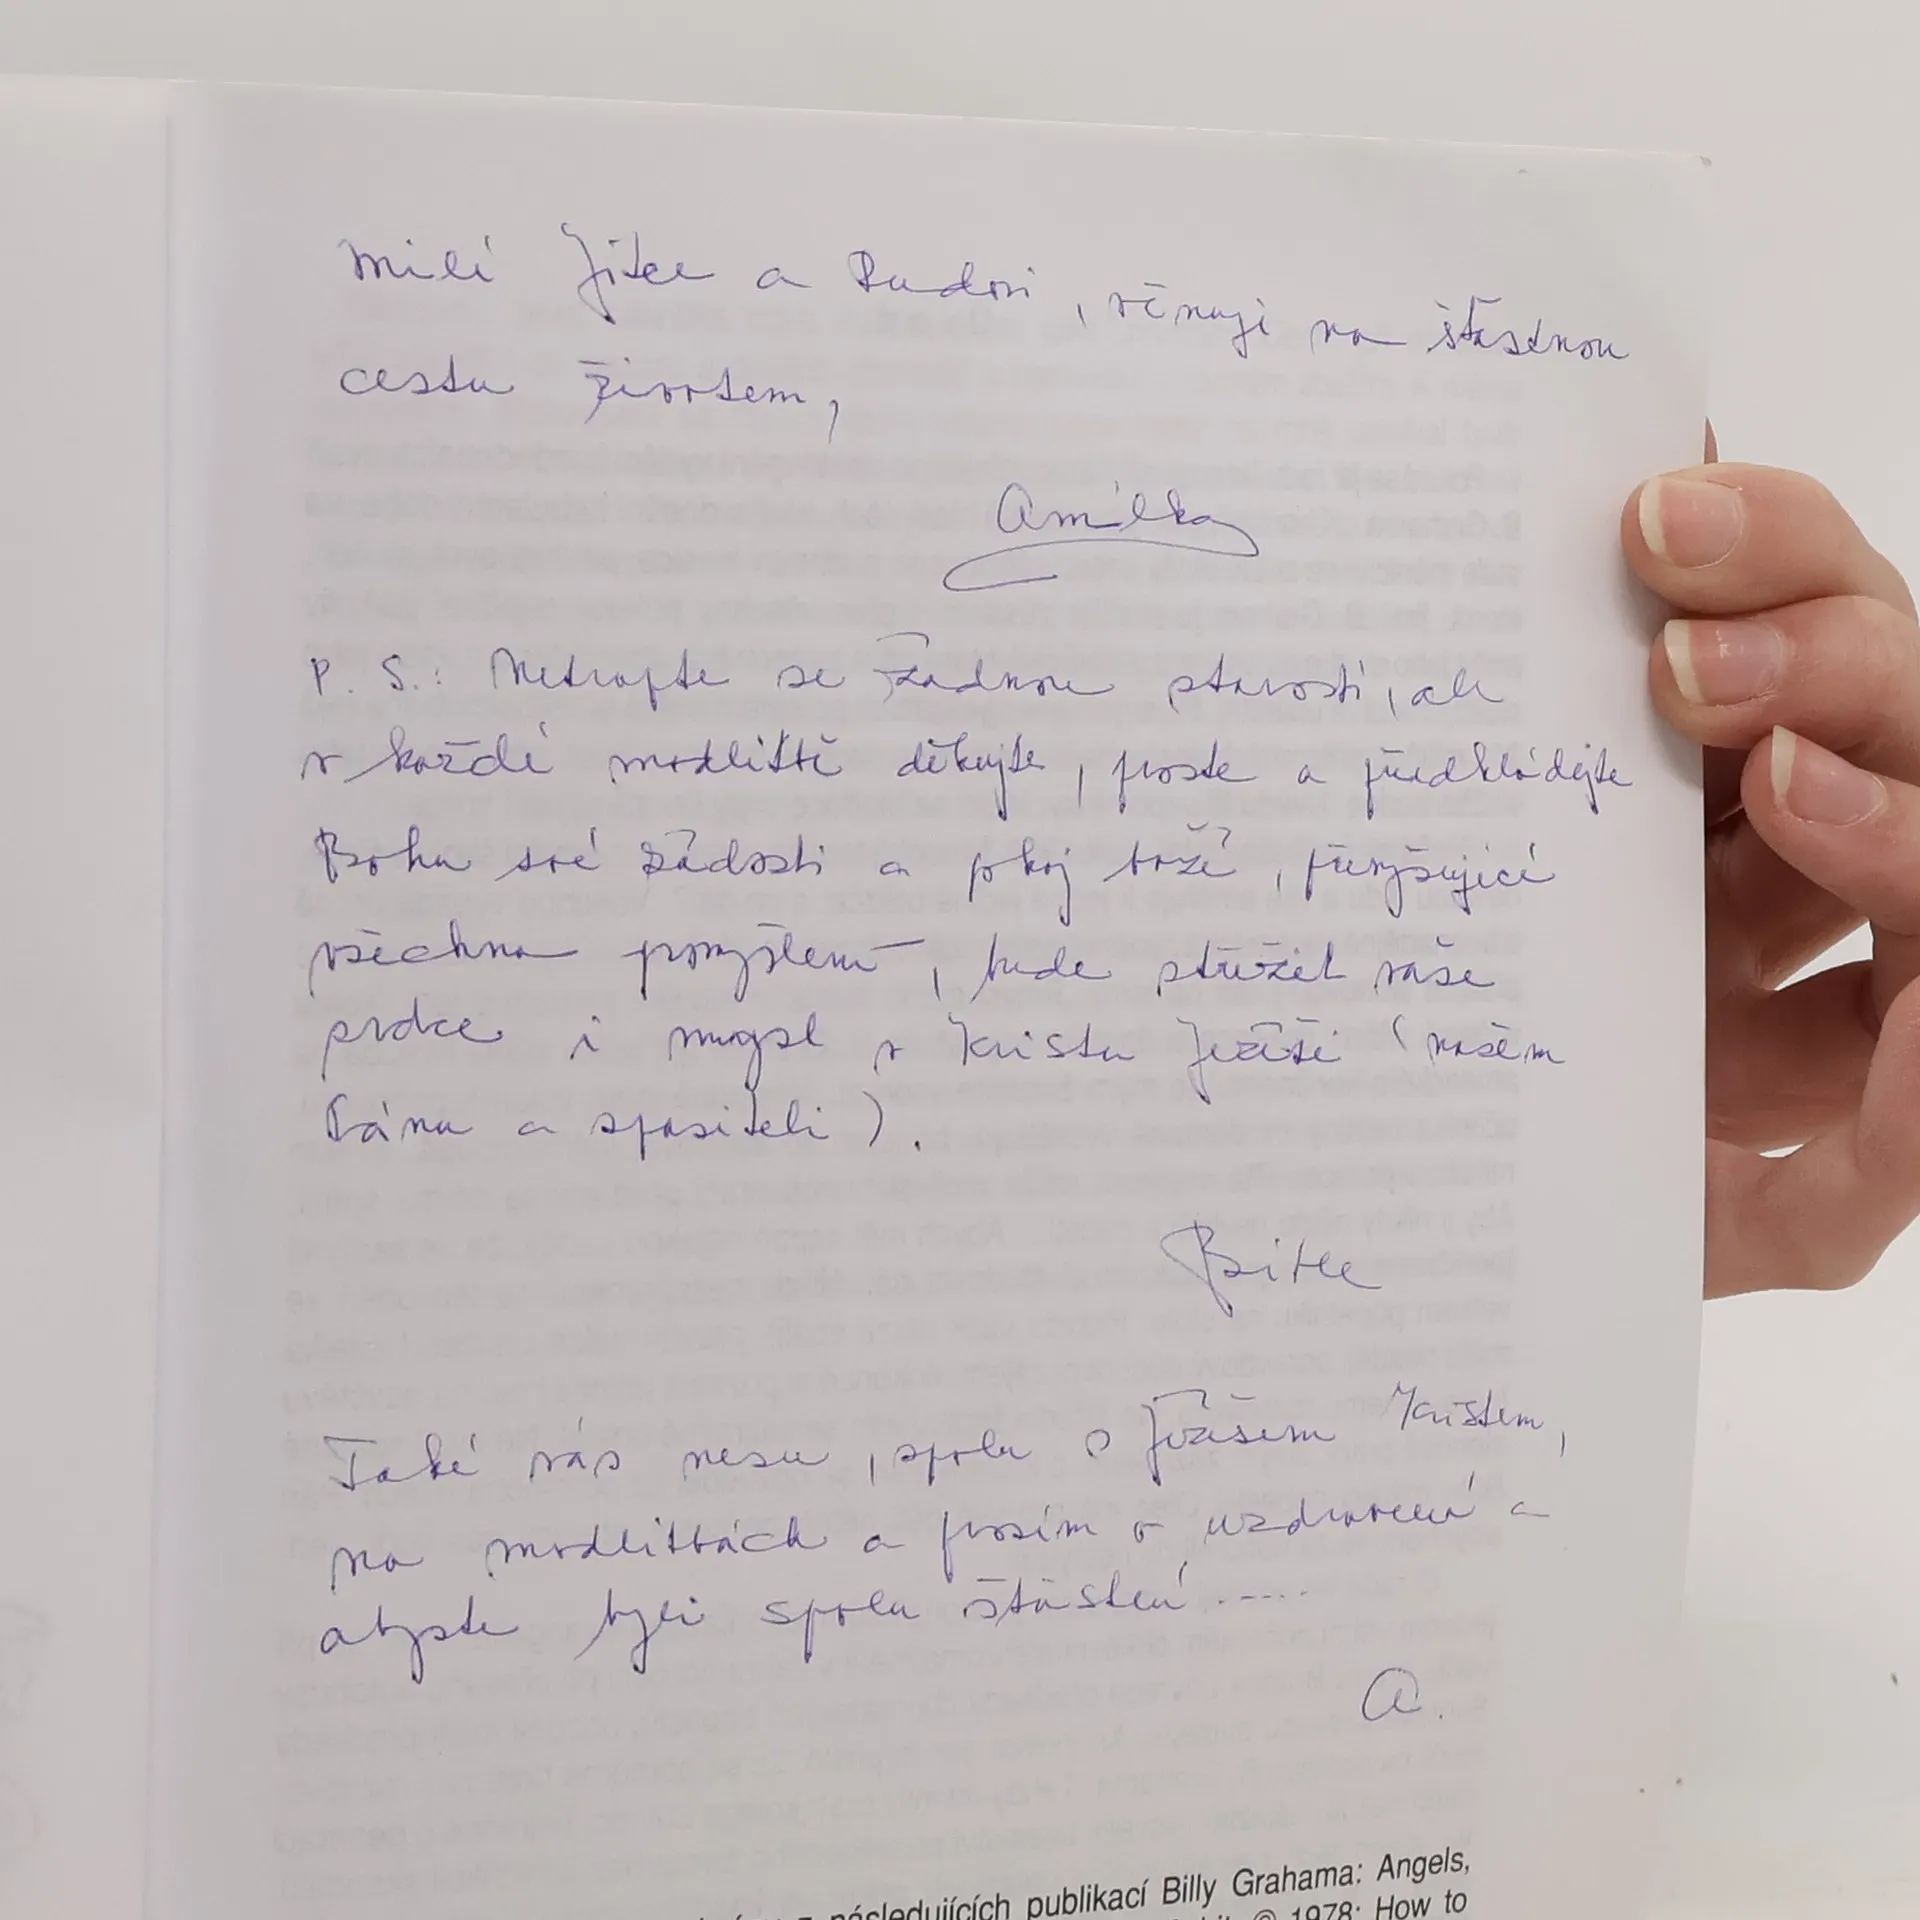 Milé Jitce a Rudovi, věnuji na šťastnou
cestu životem,
Amálka
P. S.: Netrapte se žádnou starostí, ale
v každé modlitbě děkujte, proste a předkládejte
Bohu své žádosti a pokoj boží, převyšující
všechno pomyšlení, bude střežit vaše
srdce i mysl v Kristu Ježíši (našem
Pánu a spasiteli).
Bible
Také vás nesu, spolu s Ježíšem Kristem,
na modlitbách a prosím o uzdravení a
abyste byli spolu šťastní.....
A.
následujících publikací Billy Grahama: Angels,
© 1978; How to